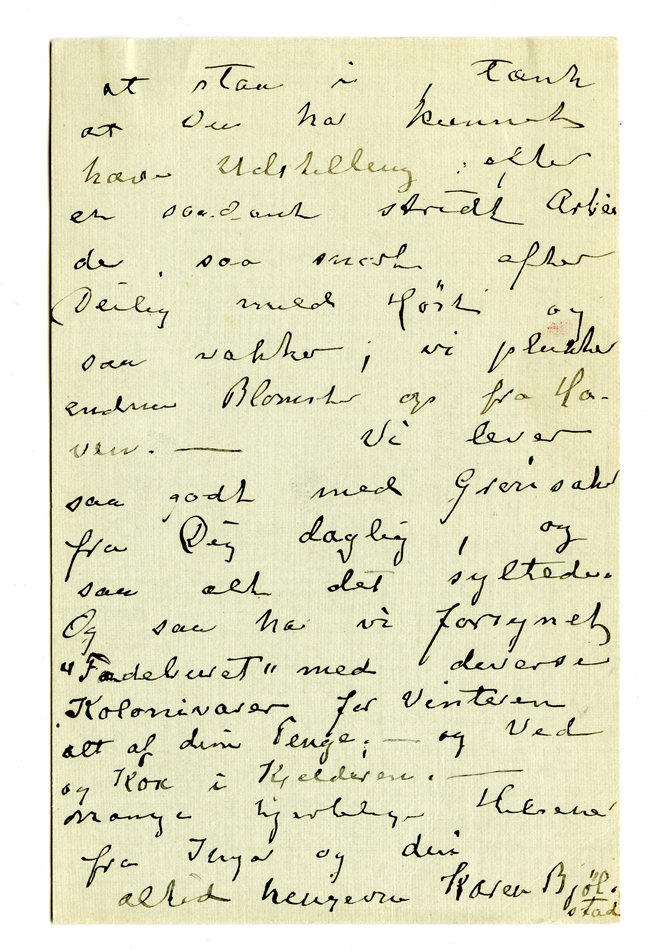 at staa i, tænk
at Du ha kunnet
have Udstilling efter
en saadant stridt Arbei
de, saa snart efter
Deilig mild Høst og
saa vakker; vi plukker
endnu Blomster op fra Ha-
ven. — Vi lever
saa godt med Grønsaker
fra Dig daglig, og
saa alt det syltede.
Og saa ha vi forsynet
"Fadeburet" med diverse
Kolonivarer for Vinteren
alt af dine Penge; — og Ved
og Kox i Kjelderen. —
Mange hjertelige Hilsener
fra Inga og din
altid hengivne Karen Bjøl-
stad